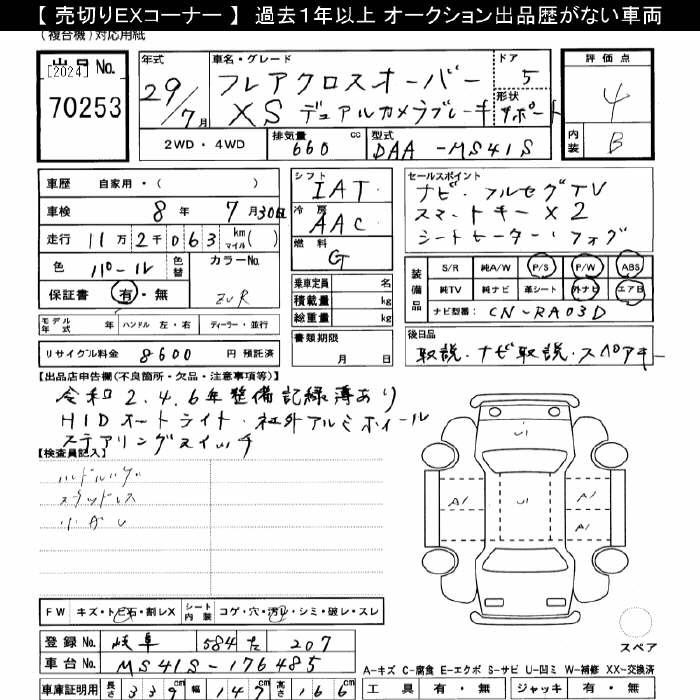 【 売切りEXコーナー 】 過去１年以上 オークション出品歴がない車両
(複合機)対応用紙
出品 No. [2024]
70253
年式
29/7月
車名・グレード
フレアクロスオーバー
XS デュアルカメラブレーキサポート
ドア
5
形状
評価点
4
内装
B
2WD・4WD
排気量 660 cc
型式 DAA-MS41S
車歴 自家用・( )
車検 8年 7月30日
走行 11万2千063 km マイル( )
色 パール 色替
カラーNo. ZVR
保証書 有・無
シフト IAT
冷房 AAC
燃料 G
乗車定員 名
積載量 kg
総重量 kg
書類期限
月 日
セールスポイント
ナビ・フルセグTV
スマートキーX2
シートヒーター・フォグ
装備品
S/R 純A/W P/S P/W ABS
純TV 純ナビ 革シート 外ナビ エアB
ナビ型番: CN-RA03D
モデル年式 年 ハンドル 左・右 ディーラー・並行
リサイクル料金 8600 円 預託済
後日品
取説・ナビ取説・スペアキー
【出品店申告欄(不良箇所・欠品・注意事項等)】
令和2.4.6年整備記録簿あり
HIDオートライト・社外アルミホイール
ステアリングスイッチ
【検査員記入】
ハンドルハゲ
スタッドレス
小ガレ
FW キズ・トビ石・割レX
シート内装 コゲ・穴・汚レ・シミ・破レ・スレ
登録 No. 岐阜 584 た 207
車台 No. MS41S-176485
車庫証明用 長さ 339cm 幅 147cm 高さ 166cm
U1
A1
U1
A1
A1
スペア
A-キズ C-腐食 E-エクボ S-サビ U-凹ミ W-補修 XX-交換済
工具 有・無 ジャッキ 有・無